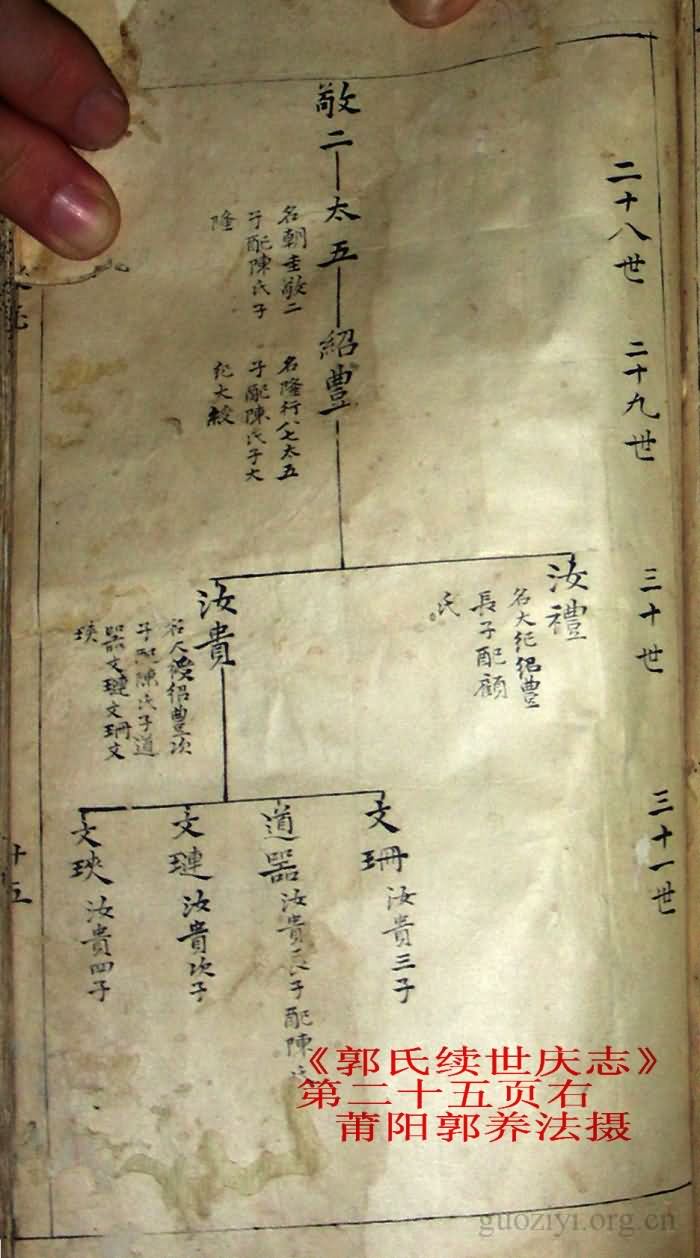 二十八世
二十九世
三十世
三十一世
敬二
太五
名朝圭敬二
子配陳氏子
隆
紹豊
名隆行八七太五
子配陳氏子大
紀大綬
汝禮
名大紀紹豊
長子配顧
氏
汝貴
名大綬紹豊次
子配陳氏子道
器文璉文珊文
瑛
文珊 汝貴三子
道器 汝貴長子配陳氏
文璉 汝貴次子
文瑛 汝貴四子
十五
《郭氏续世庆志》
第二十五页右
莆阳郭养法摄
guoziyi.org.cn